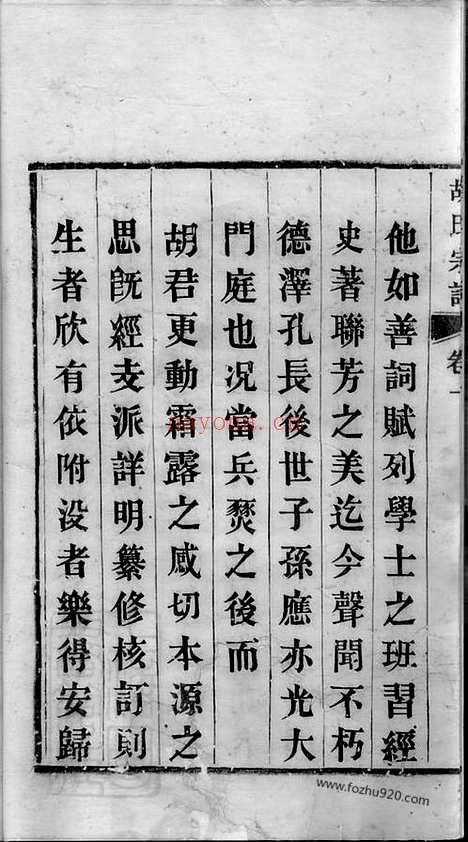 胡氏宗譜 卷一
他如善詞賦列學士之班習經
史著聯芳之美迄今聲聞不朽
德澤孔長後世子孫應亦光大
門庭也况當兵燹之後而
胡君更動霜露之感切本源之
思旣經支派詳明纂修核訂則
生者欣有依附没者樂得安歸
nayona.cn
www.fozhu920.com